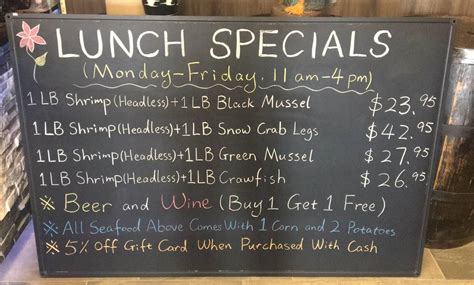 LUNCH SPECIALS
(Monday-Friday. 11am-4pm)
1LB Shrimp(Headless)+1LB Black Mussel $23.95
1LB Shrimp(Headless)+1LB Snow Crab Legs $42.95
1LB Shrimp(Headless)+1LB Green Mussel $27.95
1LB Shrimp(Headless)+1LB Crawfish $26.95
※ Beer and Wine (Buy 1 Get 1 Free)
※ All Seafood Above Comes With 1 Corn and 2 Potatoes
※ 5% Off Gift Card When Purchased With Cash